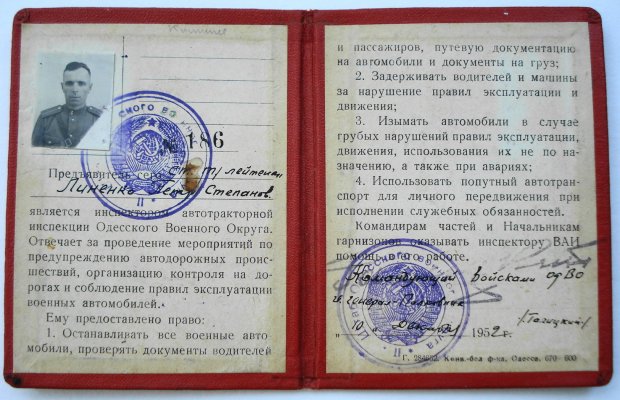 № 186
Предъявитель сего Ст. т/лейтенан
Линенко Степанов.
является инспектором автотракторной
инспекции Одесского Военного Округа.
Отвечает за проведение мероприятий по
предупреждению автодорожных проис-
шествий, организацию контроля на до-
рогах и соблюдение правил эксплуатации
военных автомобилей.
Ему предоставлено право:
1. Останавливать все военные авто
мобили, проверять документы водителей
и пассажиров, путевую документацию
на автомобили и документы на груз;
2. Задерживать водителей и машины
за нарушение правил эксплуатации и
движения;
3. Изымать автомобили в случае
грубых нарушений правил эксплуатации,
движения, использования их не по на-
значению, а также при авариях;
4. Использовать попутный автотран-
спорт для личного передвижения при
исполнении служебных обязанностей.
Командирам частей и Начальникам
гарнизонов оказывать инспектору ВАИ
помощь в его работе.
Командующий войсками одВО
генерал-Полковник
10 1952 г.
Г. 284632. Кенв.-бел ф-ка, Одесса, 670—600